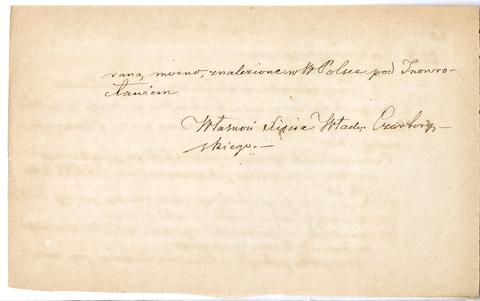 raną mocno, znalezione w Polsce pod Inowro-
cławiem
Własność Xięcia Wład. Czartory-
skiego.—